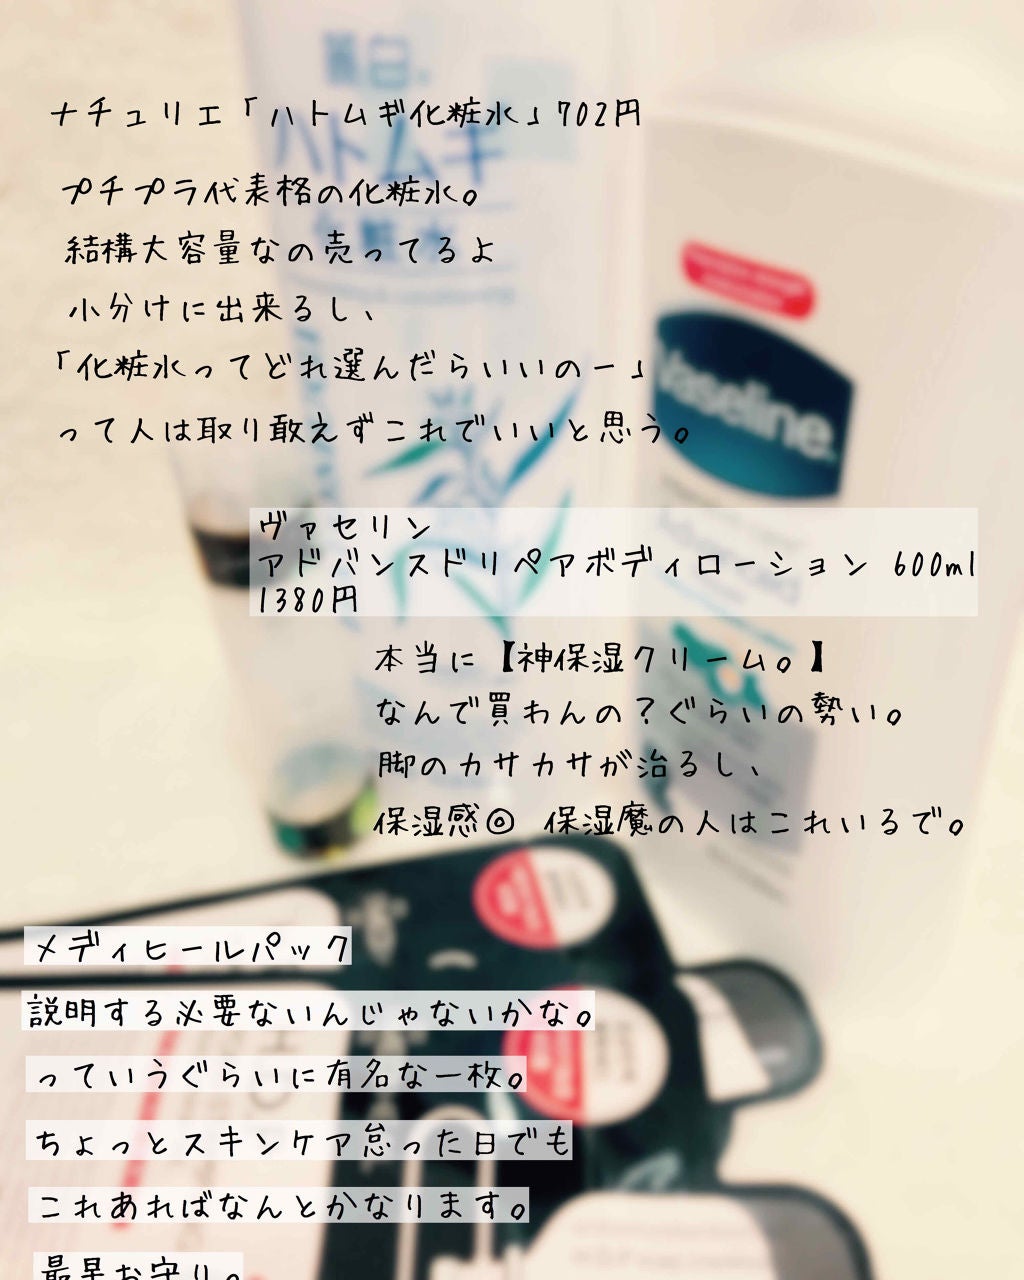 ナチュリエ「ハトムギ化粧水」702円
プチプラ代表格の化粧水。
結構大容量なの売ってるよ
小分けに出来るし、
「化粧水ってどれ選んだらいいのー」
って人は取り敢えずこれでいいと思う。
ヴァセリン
アドバンスドリペアボディローション 600ml
1380円
本当に【神保湿クリーム。】
なんで買わんの?ぐらいの勢い。
脚のカサカサが治るし、
保湿感◎ 保湿魔の人はこれいるで。
メディヒールパック
説明する必要ないんじゃないかな。
っていうぐらいに有名な一枚。
ちょっとスキンケア怠った日でも
これあればなんとかなります。
最早お守り。
ハトムギ
化粧水
Vaseline